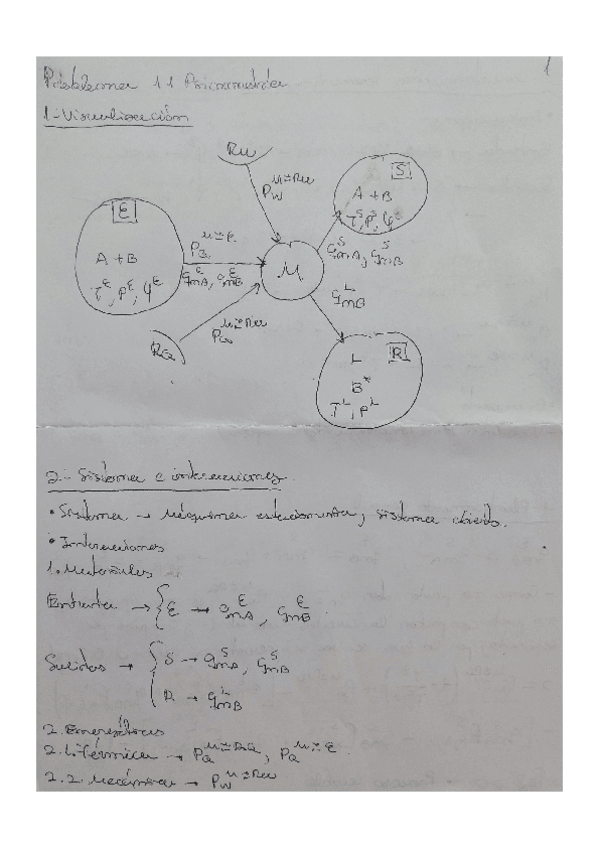 1
Problema 11 Psicrometría
1.- Visualización
RW
P_W^{M⇄RW}
S
A + B
T^S, P^S, φ^S
E
P_Q^{M⇄E}
A + B
M
G_{mA}^S, G_{mB}^S
T^E, P^E, φ^E
G_{mA}^E, G_{mB}^E
G_{mB}^L
P_Q^{M⇄RQ}
RQ
L
R
B*
T^L, P^L
2.- Sistema e interacciones
• Sistema → Máquina estacionaria, sistema abierto.
• Interacciones
1. Materiales
Entrada → { E → G_{mA}^E, G_{mB}^E
Salidas → { S → G_{mA}^S, G_{mB}^S
R → G_{mB}^L
2. Energéticas
2.1. Térmica → P_Q^{M⇄RQ}, P_Q^{M⇄E}
2.2. Mecánica → P_W^{M⇄RW}